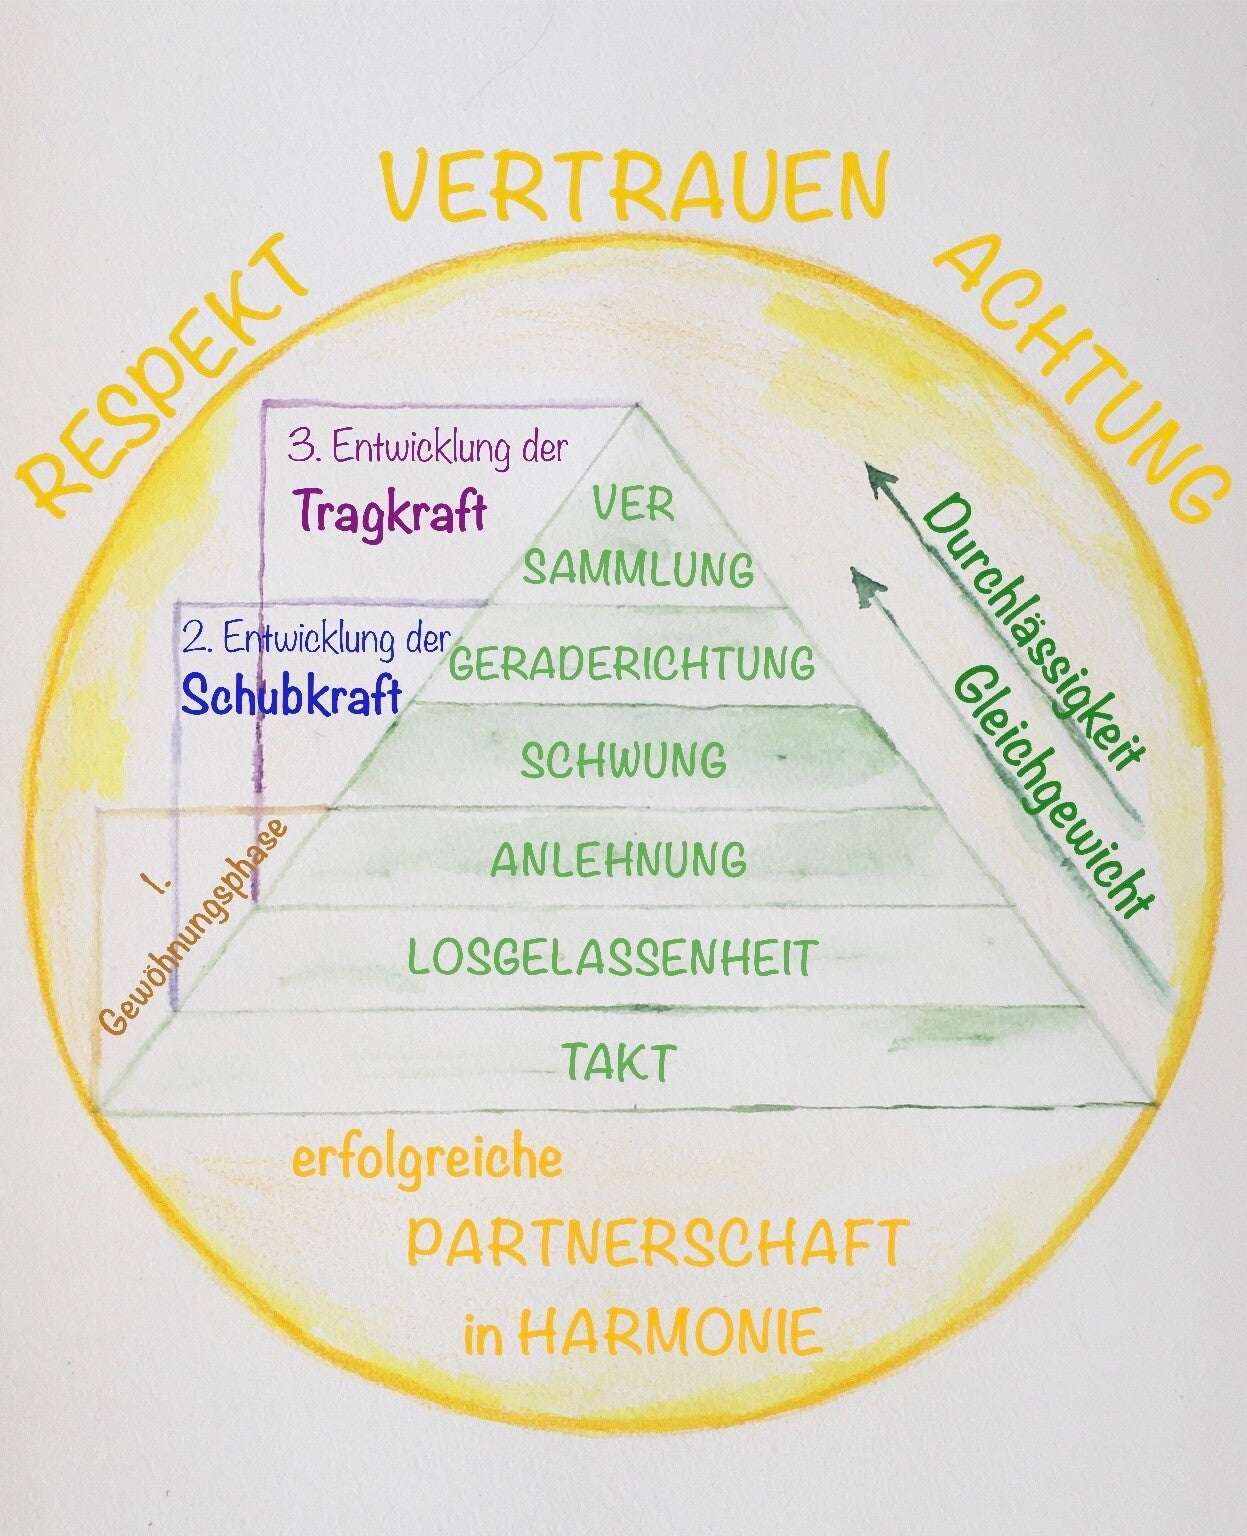 VERTRAUEN
RESPEKT
ACHTUNG
3. Entwicklung der
Tragkraft
VER
SAMMLUNG
Durchlässigkeit
2. Entwicklung der
Schubkraft
GERADERICHTUNG
Gleichgewicht
SCHWUNG
1.
Gewöhnungsphase
ANLEHNUNG
LOSGELASSENHEIT
TAKT
erfolgreiche
PARTNERSCHAFT
in HARMONIE